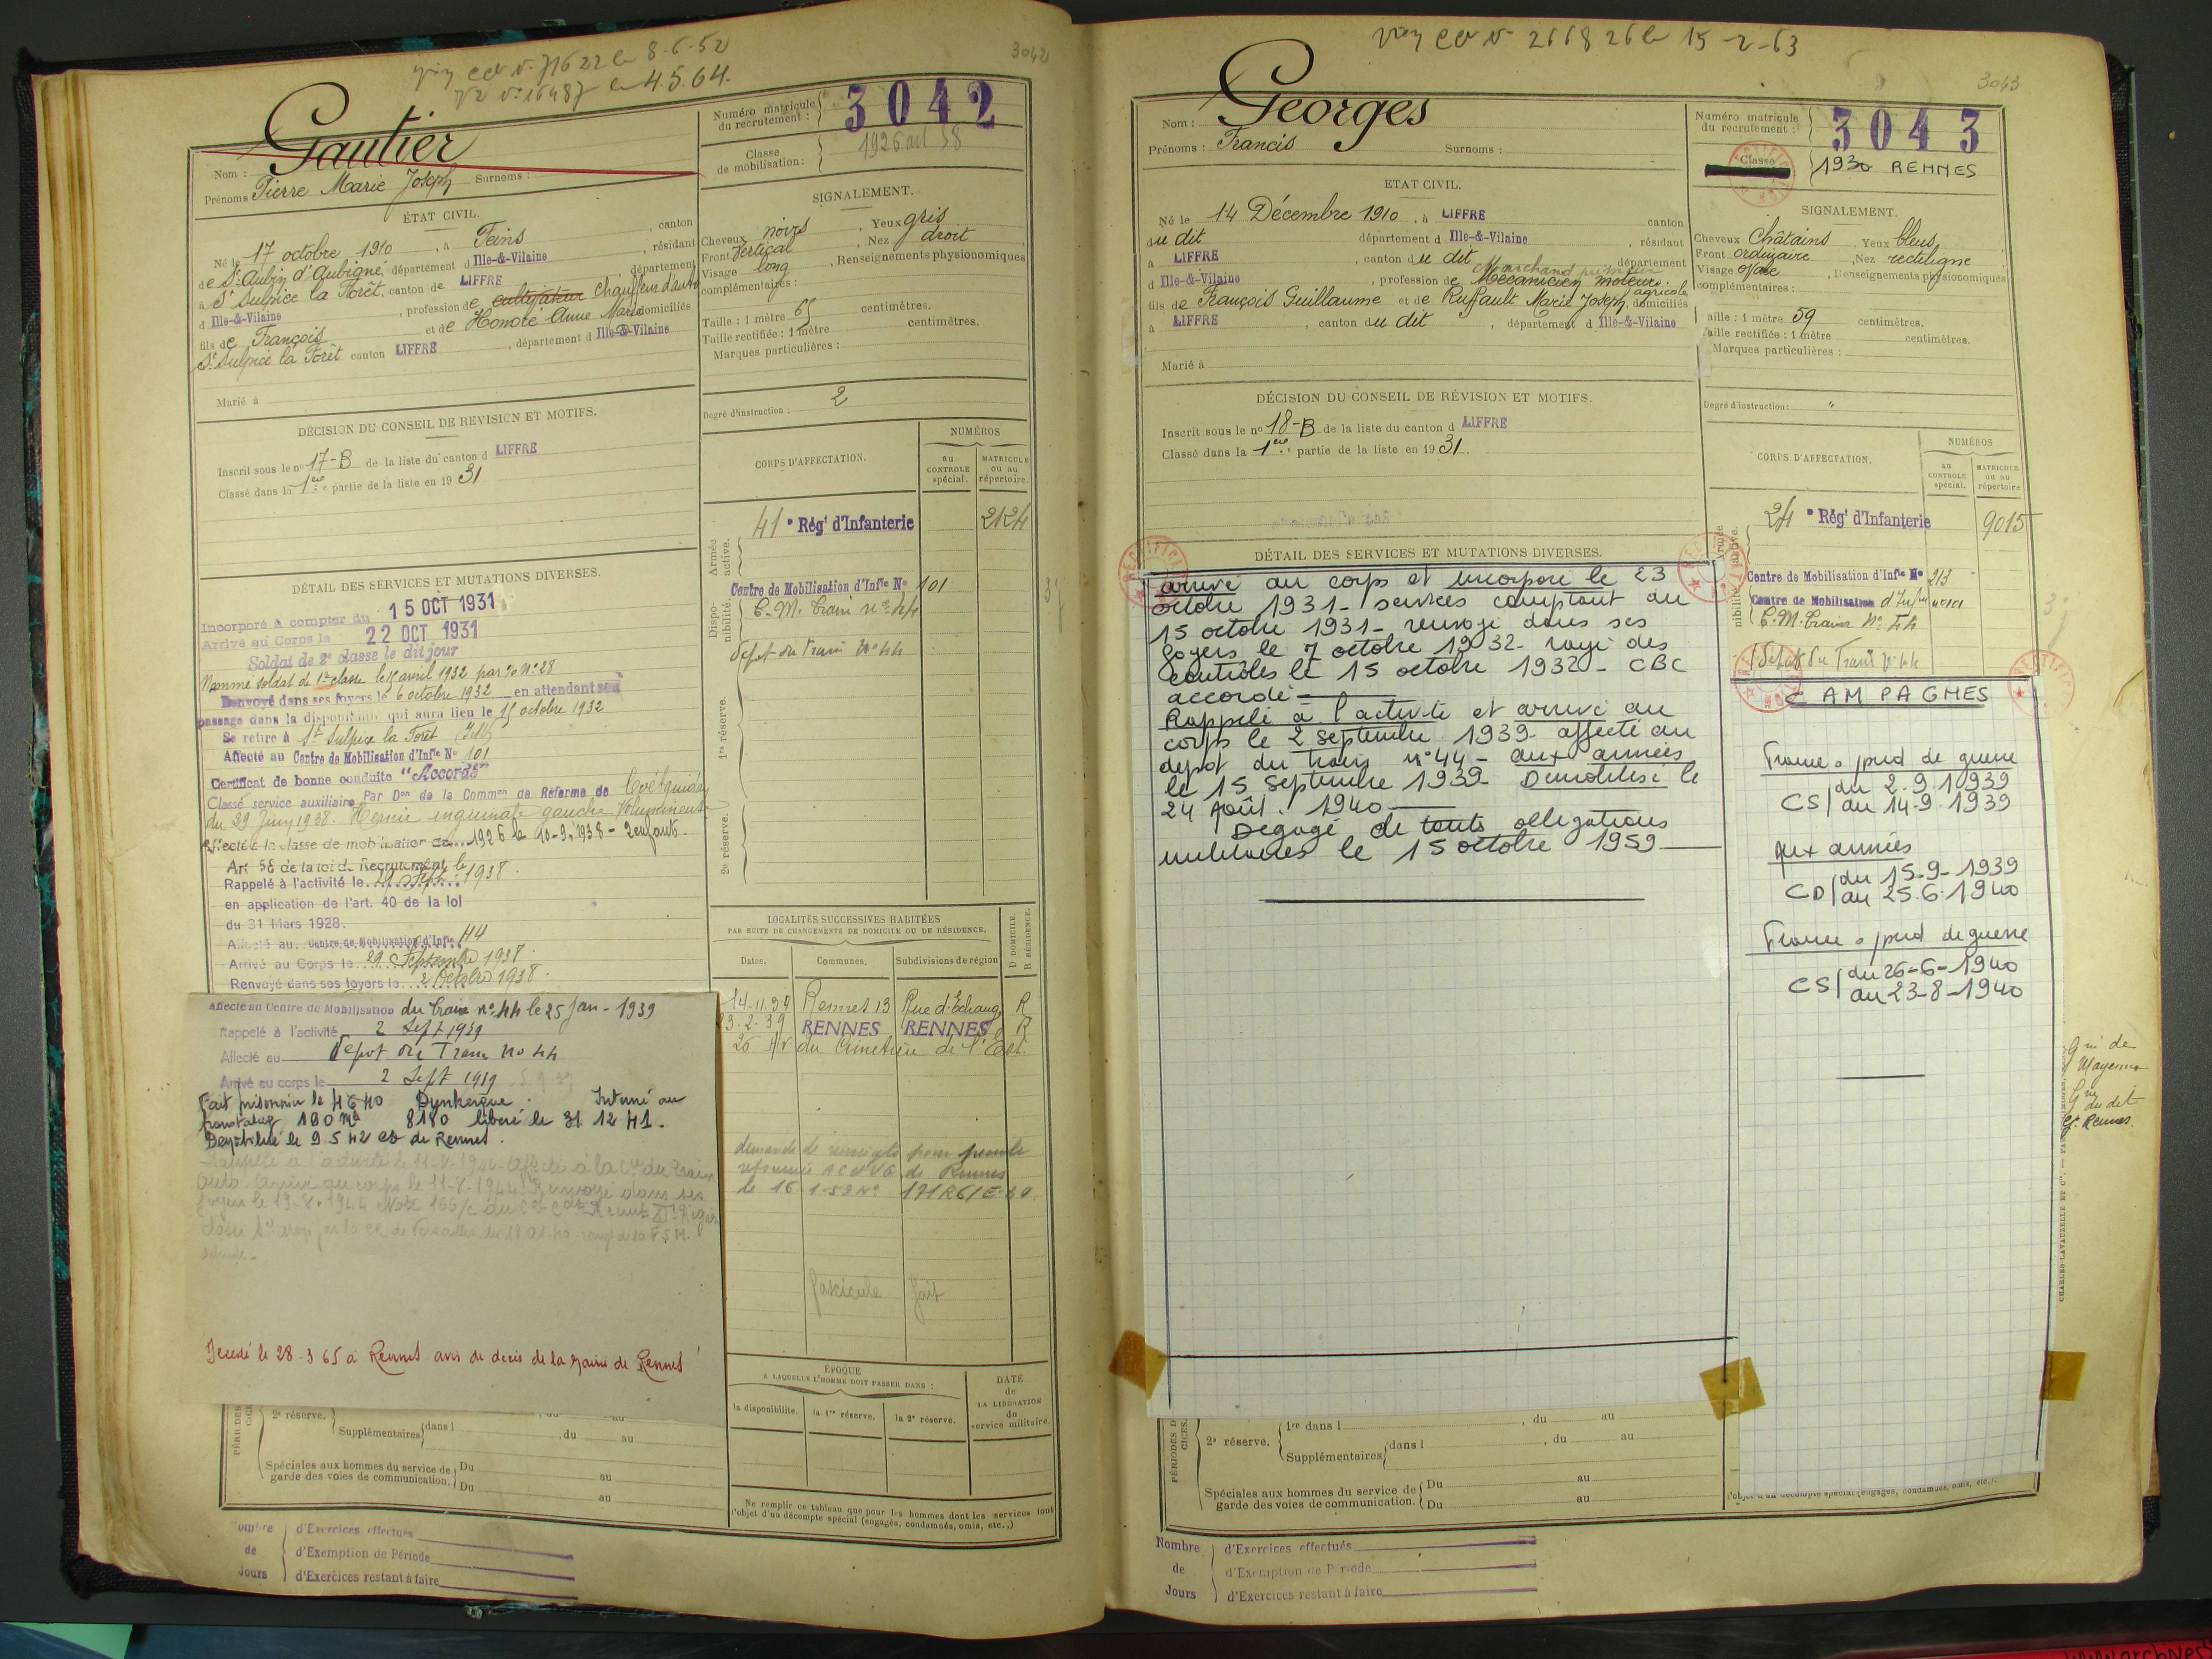 3042
Gautier
Nom :
Prénoms Pierre Marie Joseph Surnoms :
Numéro matricule du recrutement : 3042
Classe de mobilisation : 1926 art 58
ÉTAT CIVIL.
Né le 17 octobre 1910, à Feins, canton
de St Aubin d'Aubigné, département d Ille-&-Vilaine, résidant
à St Sulpice la Forêt, canton de LIFFRE, département
d Ille-&-Vilaine, profession de cultivateur Chauffeur d'auto
fils de François et de Honoré Anne Marie domiciliés
St Sulpice la Forêt canton LIFFRE, département d Ille-&-Vilaine
Marié à
SIGNALEMENT.
Cheveux noirs, Yeux gris
Front Vertical, Nez droit
Visage long, Renseignements physionomiques
complémentaires :
Taille : 1 mètre 65 centimètres.
Taille rectifiée : 1 mètre centimètres.
Marques particulières :
Degré d'instruction : 2
DÉCISION DU CONSEIL DE REVISION ET MOTIFS.
Inscrit sous le no 17-B de la liste du canton d LIFFRE
Classé dans la 1ère partie de la liste en 1931
CORPS D'AFFECTATION.
NUMÉROS
AU CONTROLE spécial.
MATRICULE ou au répertoire.
Armée active.
41e Régt d'Infanterie 2124
Disponibilité.
Centre de Mobilisation d'Infie No 101
C. M. Train no 44
dépot du Train No 44
1re réserve.
2e réserve.
DÉTAIL DES SERVICES ET MUTATIONS DIVERSES.
Incorporé à compter du 15 OCT 1931
Arrivé au Corps le 22 OCT 1931
Soldat de 2e classe le dit jour
Nommé soldat de 1re classe le 15 avril 1932 par % No 28
Renvoyé dans ses foyers le 6 octobre 1932 en attendant son
passage dans la disponibilité qui aura lieu le 15 octobre 1932
Se retire à St Sulpice la Forêt
Affecté au Centre de Mobilisation d'Infie No 101
Certificat de bonne conduite "Accordé"
Classé service auxiliaire Par Don de la Common de Réforme de Coëtquidan
du 29 Juin 1938. Hernie inguinale gauche Volumineuse
Affecté à la classe de mobilisation de 1926 le 10-9-1938 - 2 enfants.
Art 58 de la loi de Recrutement
Rappelé à l'activité le 29 Sept 1938.
en application de l'art. 40 de la loi
du 31 Mars 1928.
Affecté au Centre de Mobilisation d'Infie 44
Arrivé au Corps le 29 Septembre 1938
Renvoyé dans ses foyers le 2 Octobre 1938.
Affecté au Centre de Mobilisation du Train no 44 le 25 Jan - 1939
Rappelé à l'activité 2 Sept 1939
Affecté au Dépot du Train No 44
Arrivé au corps le 2 Sept 1939
Fait prisonnier le 4 6 40 Dunkerque. Interné au
frontstalag 190 Mle 8180 libéré le 31 12 41.
Démobilisé le 9 5 42 de Rennes.
Rappelé à l'activité le 11-8-1944 Affecté à la Cie du Train
auto Arrivé au corps le 11-8-1944 Renvoyé dans ses
foyers le 19-8-1944
Décédé le 28-3 65 à Rennes avis de décès de la mairie de Rennes
LOCALITÉS SUCCESSIVES HABITÉES
PAR SUITE DE CHANGEMENTS DE DOMICILE OU DE RÉSIDENCE.
Dates. Communes. Subdivisions de région D DOMICILE. R RÉSIDENCE.
Rennes 13 Rue d'Echange R
RENNES RENNES R
du Cimetière de l'Est.
le 16-1-52 No
fascicule fait
ÉPOQUE
A LAQUELLE L'HOMME DOIT PASSER DANS :
la disponibilité. la 1re réserve. la 2e réserve.
DATE de LA LIBÉRATION du service militaire.
2e réserve.
Supplémentaires dans l , du au
Spéciales aux hommes du service de garde des voies de communication. Du au
Du au
Ne remplir ce tableau que pour les hommes dont les services font
l'objet d'un décompte spécial (engagés, condamnés, omis, etc.,)
d'Exercices effectués
de d'Exemption de Période
Jours d'Exercices restant à faire
3043
Nom : Georges
Prénoms : Francis Surnoms :
Numéro matricule du recrutement : 3043
Classe 1930 RENNES
ETAT CIVIL.
Né le 14 Décembre 1910, à LIFFRE canton
du dit département d Ille-&-Vilaine, résidant
à LIFFRE, canton du dit, département
d Ille-&-Vilaine, profession de Mécanicien moteurs agricole
Marchand primeur
fils de François Guillaume et de Ruffault Marie Joseph, domiciliés
à LIFFRE, canton du dit, département d Ille-&-Vilaine
Marié à
SIGNALEMENT.
Cheveux Châtains, Yeux bleus
Front ordinaire, Nez rectiligne
Visage ovale, Renseignements physionomiques
complémentaires :
aille : 1 mètre 59 centimètres.
aille rectifiée : 1 mètre centimètres.
Marques particulières :
Degré d'instruction : "
DÉCISION DU CONSEIL DE RÉVISION ET MOTIFS.
Inscrit sous le no 18-B de la liste du canton d LIFFRE
Classé dans la 1ère partie de la liste en 1931.
CORPS D'AFFECTATION.
NUMÉROS
AU CONTROLE spécial.
MATRICULE ou au répertoire
24e Régt d'Infanterie 9015
Centre de Mobilisation d'Infie No 213
Centre de Mobilisation d'Infie no 101
C. M. Train No 44
Dépot du Train No 44
DÉTAIL DES SERVICES ET MUTATIONS DIVERSES.
arrivé au corps et incorporé le 23
octobre 1931 - services comptant du
15 octobre 1931 - renvoyé dans ses
foyers le 7 octobre 1932 - rayé des
contrôles le 15 octobre 1932 - CBC
accordé -
Rappelé à l'activité et arrivé au
corps le 2 septembre 1939 - affecté au
dépôt du train no 44 - aux armées
le 15 septembre 1939 - Démobilisé le
24 Août. 1940
Dégagé de touts obligations
militaires le 15 octobre 1959
CAMPAGNES
France s/pied de guerre
CS/ du 2.9.10939
au 14-9-1939
aux armées
CD/ du 15-9-1939
au 25.6.1940
France s/pied de guerre
CS/ du 26-6-1940
au 23-8-1940
Mayenne
du dit
Rennes.
PÉRIODES D
2e réserve. 1re dans l , du au
Supplémentaires dans l , du au
Spéciales aux hommes du service de garde des voies de communication. Du au
Du au
l'objet d'un décompte spécial (engagés, condamnés, omis, etc.).
Nombre d'Exercices effectués
de d'Exemption de Période
Jours d'Exercices restant à faire
CHARLES-LAVAUZELLE ET Cie.